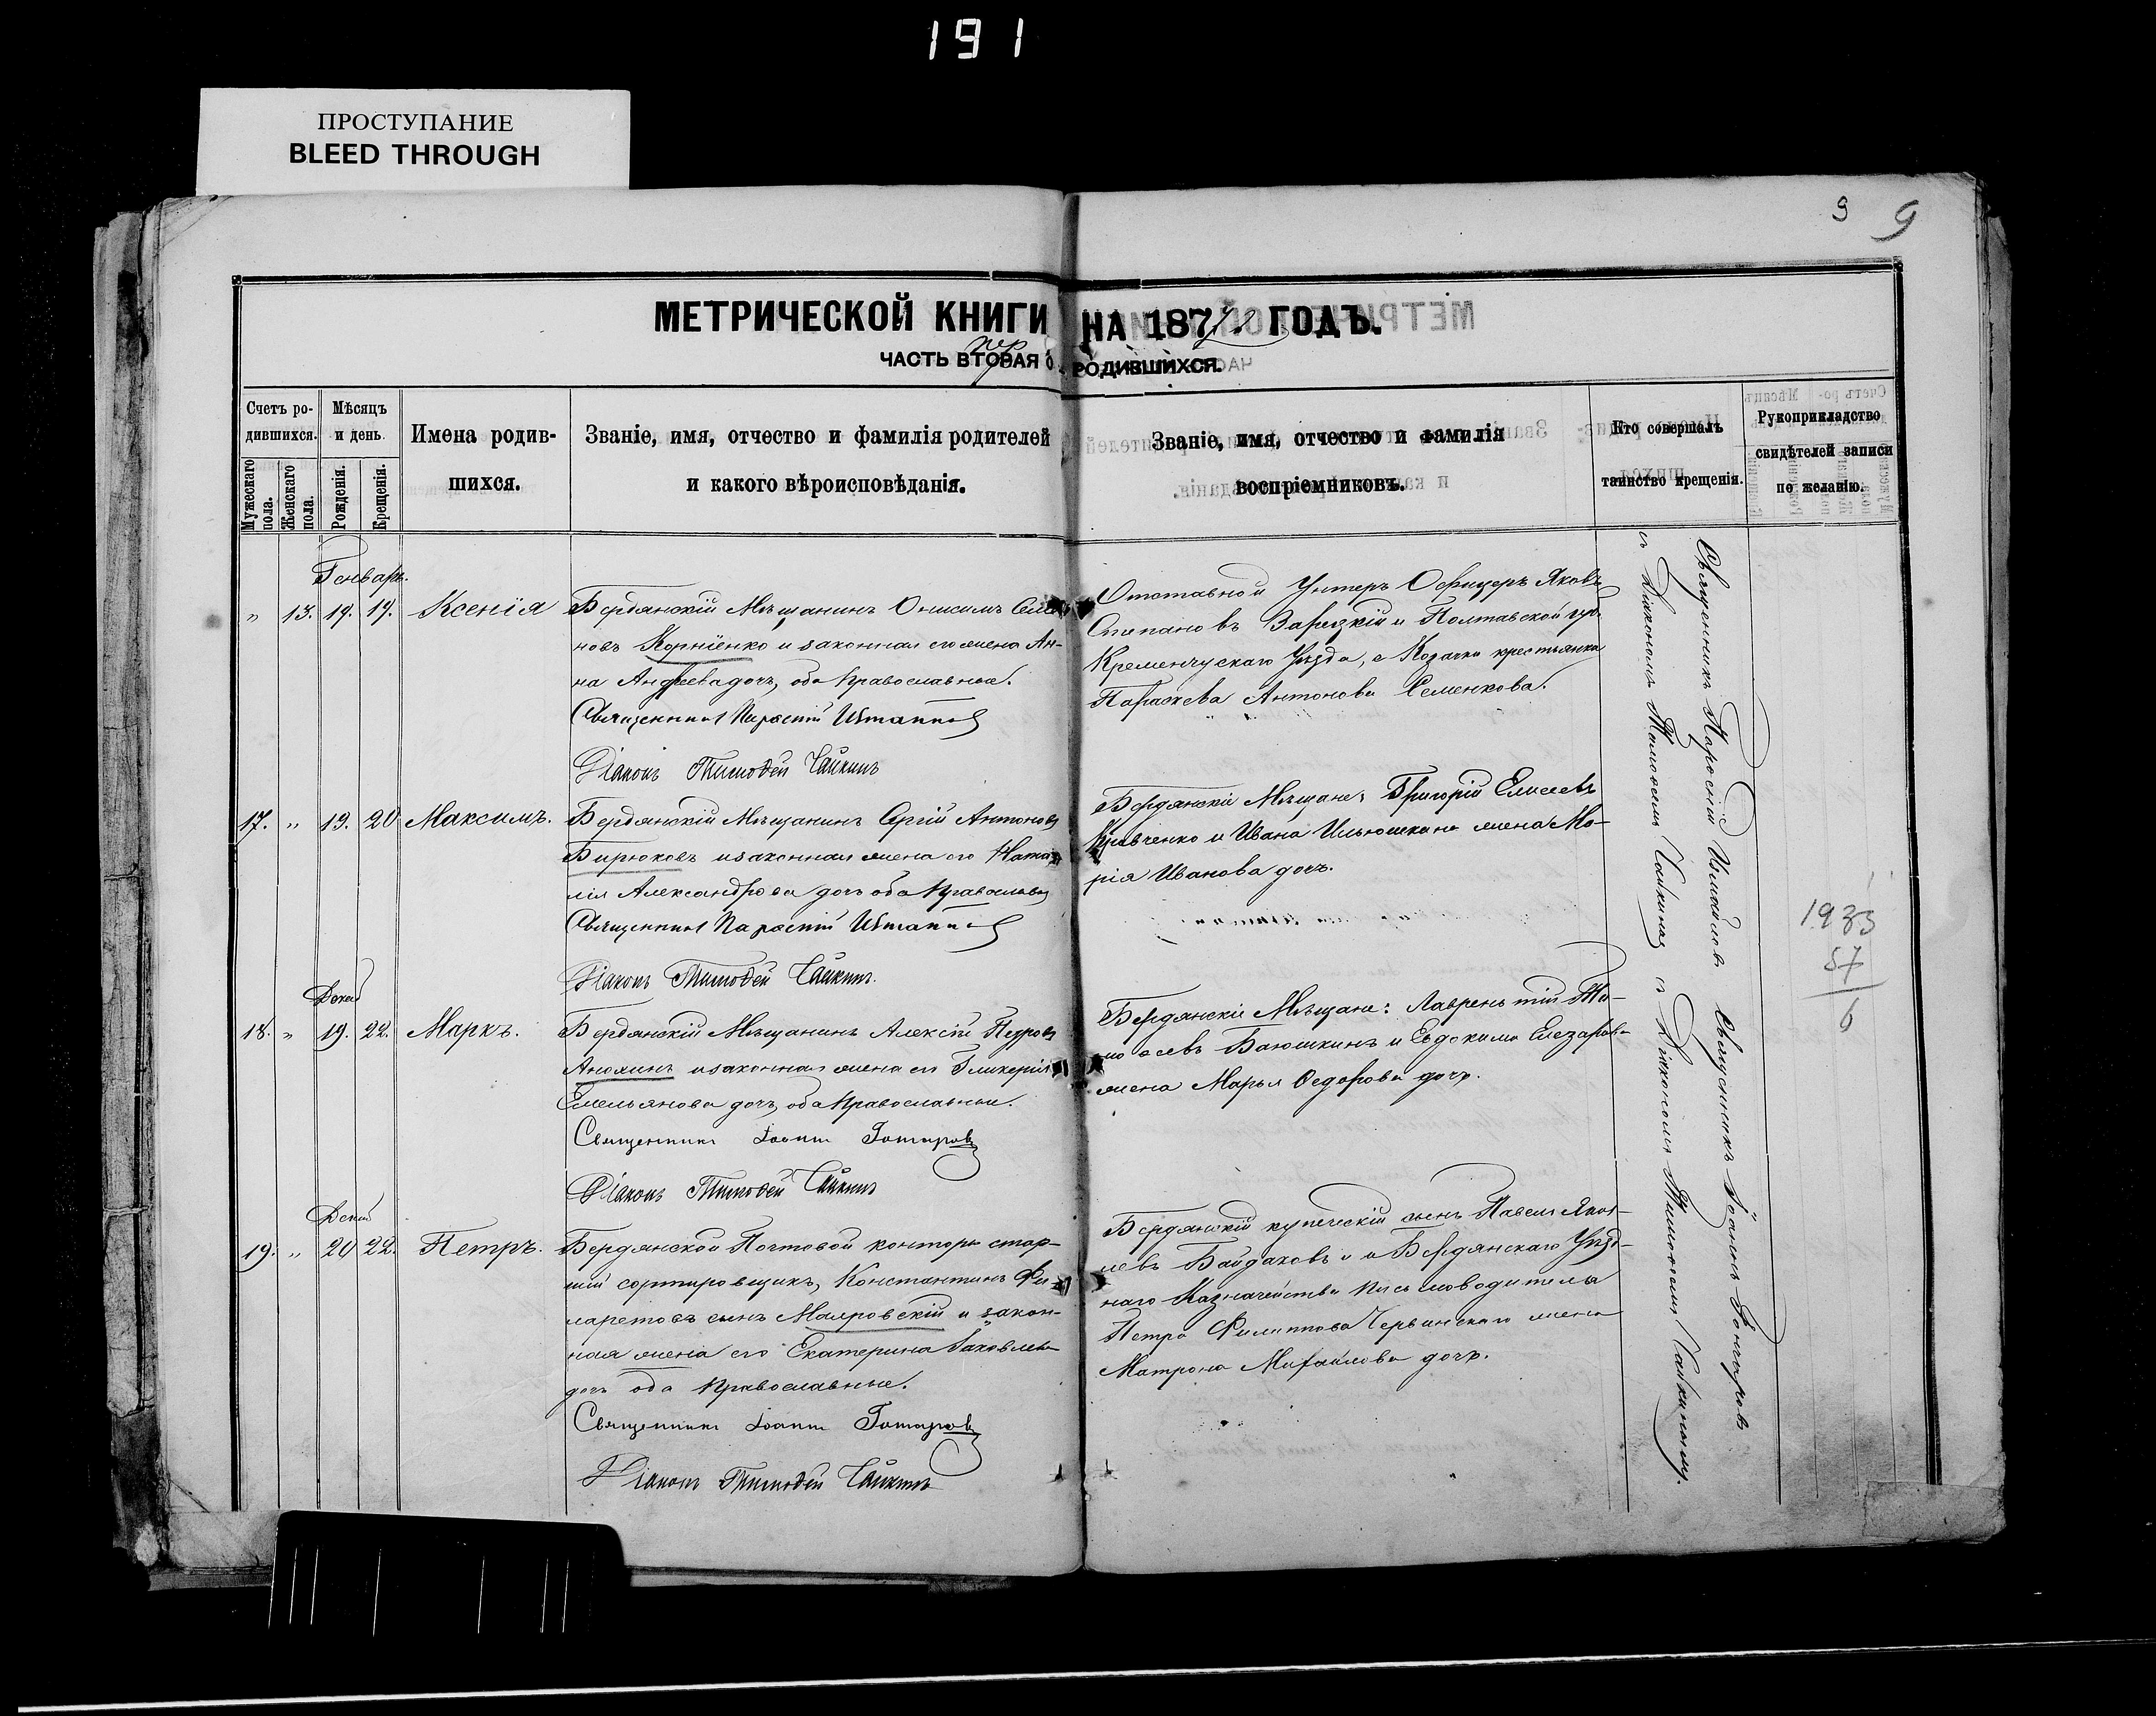 191
ПРОСТУПАНИЕ
BLEED THROUGH
9 9
МЕТРИЧЕСКОЙ КНИГИ НА 187 ГОДЪ.
ЧАСТЬ ВТОРАЯ О РОДИВШИХСЯ.
Счетъ ро-
дившихся.
Мужескаго пола.
Женскаго пола.
Мѣсяцъ
и день.
Рожденія.
Крещенія.
Имена родив-
шихся.
Званіе, имя, отчество и фамилія родителей
и какого вѣроисповѣданія.
Званіе, имя, отчество и фамилія
воспріемниковъ.
Кто совершалъ
таинство крещенія.
Рукоприкладство
свидѣтелей записи
по желанію.
Генварь.
" 13. 19. 19. Ксенія
Бердянскій Мѣщанинъ Онисимъ Семе
новъ Корніенко и законная его жена Ан-
на Андреева дочь, оба православные.
Священникъ
Діаконъ Тимофей Чайкинъ
Отставной Унтеръ Офицеръ Яковъ
Степановъ Зарѣзкій и Полтавской гу.
Кременчускаго Уѣзда, Козачка крестьянка
Параскева Антонова Семенкова.
17. " 19. 20 Максимъ.
Бердянскій Мѣщанинъ Сергій Антоновъ
Бирюковъ и законная жена его Ната
лія Александрова дочь оба православн
Священникъ
Діаконъ Тимофей Чайкинъ.
Бердянскіе Мѣщане: Григорій Елисеевъ
Кравченко и Ивана Ильюшкина жена Ма-
рія Иванова дочь.
18. " 19. 22. Маркъ.
Бердянскій Мѣщанинъ Алексѣй Петровъ
Анохинъ и законная жена его Гликерія
Емельянова дочь, оба православные.
Священникъ Іоаннъ Гончаровъ
Діаконъ Тимофей Чайкинъ
Бердянскіе Мѣщане: Лаврентій Ти-
мофеевъ Баюшкинъ и Евдокима Елезарова
жена Марья Федорова дочь.
19. " 20 22. Петръ.
Бердянской Почтовой конторы стар-
шій сортировщикъ, Константинъ Фи-
ларетовъ сынъ Маяровскій и закон-
ная жена его Екатерина Яковлева
дочь оба православные.
Священникъ Іоаннъ Гончаровъ
Діаконъ Тимофей Чайкинъ
Бердянскій купеческій сынъ Павелъ Яков-
левъ Байдаковъ и Бердянскаго Уѣзд-
наго Казначейства письмоводителя
Петра Филиппова Червинскаго жена
Матрона Михайлова дочь.
Священникъ Измайловъ
съ Діакономъ Тимофеемъ Чайкинымъ
Священникъ Іоаннъ Гончаровъ
съ Діакономъ Тимофеемъ Чайкинымъ.
57
6